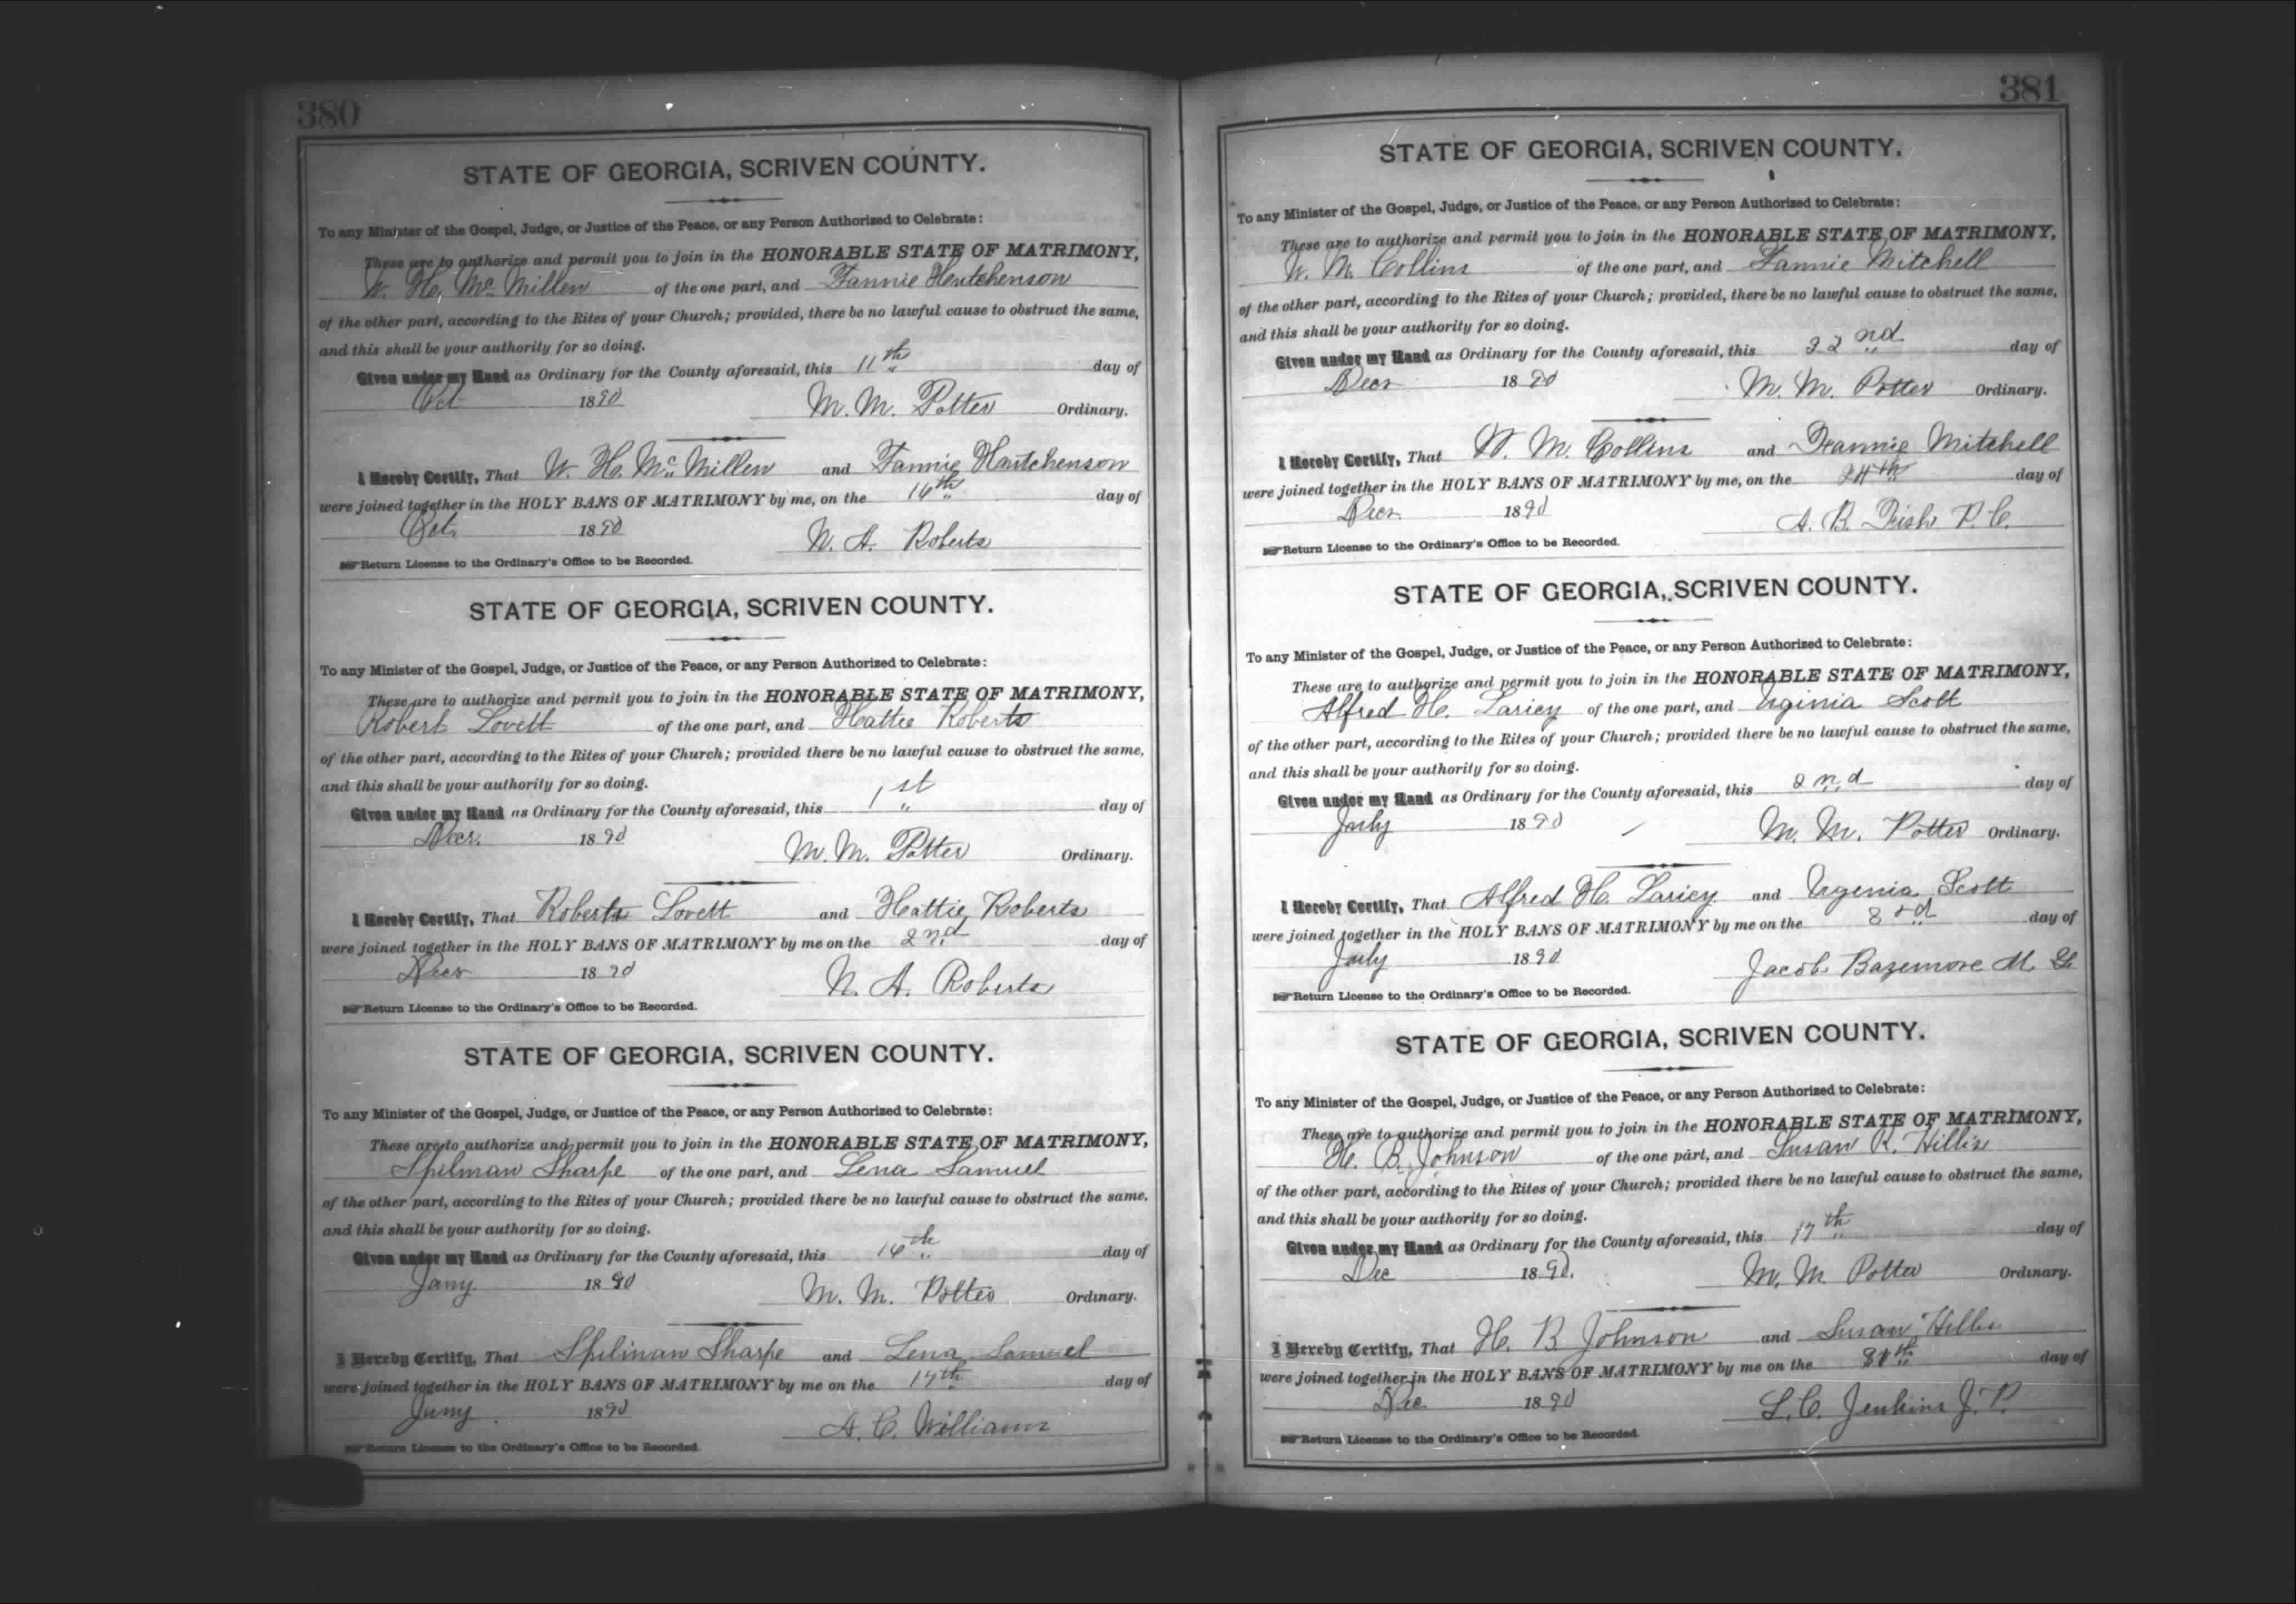 380
STATE OF GEORGIA, SCRIVEN COUNTY.
To any Minister of the Gospel, Judge, or Justice of the Peace, or any Person Authorized to Celebrate:
These are to authorize and permit you to join in the HONORABLE STATE OF MATRIMONY,
W. H. McMillen of the one part, and Fannie Hutchenson
of the other part, according to the Rites of your Church; provided, there be no lawful cause to obstruct the same,
and this shall be your authority for so doing.
Given under my Hand as Ordinary for the County aforesaid, this 11th day of
Oct 1890 M. M. Potter Ordinary.
I Hereby Certify, That W. H. McMillen and Fannie Hutchenson
were joined together in the HOLY BANS OF MATRIMONY by me, on the day of
Oct. 1890 W. A. Roberts
Return License to the Ordinary's Office to be Recorded.
STATE OF GEORGIA, SCRIVEN COUNTY.
To any Minister of the Gospel, Judge, or Justice of the Peace, or any Person Authorized to Celebrate:
These are to authorize and permit you to join in the HONORABLE STATE OF MATRIMONY,
Robert Lovett of the one part, and Hattie Roberts
of the other part, according to the Rites of your Church; provided there be no lawful cause to obstruct the same,
and this shall be your authority for so doing.
Given under my Hand as Ordinary for the County aforesaid, this 1st day of
Decr. 1890 M. M. Potter Ordinary.
I Hereby Certify, That Roberts Lovett and Hattie Roberts
were joined together in the HOLY BANS OF MATRIMONY by me on the 2nd day of
Decr 1890 A. Roberts
Return License to the Ordinary's Office to be Recorded.
STATE OF GEORGIA, SCRIVEN COUNTY.
To any Minister of the Gospel, Judge, or Justice of the Peace, or any Person Authorized to Celebrate:
These are to authorize and permit you to join in the HONORABLE STATE OF MATRIMONY,
Spilman Sharpe of the one part, and Lena Samuel
of the other part, according to the Rites of your Church; provided there be no lawful cause to obstruct the same,
and this shall be your authority for so doing.
Given under my Hand as Ordinary for the County aforesaid, this 16th day of
Jany. 1890 M. M. Potter Ordinary.
I Hereby Certify, That Spilman Sharpe and Lena Samuel
were joined together in the HOLY BANS OF MATRIMONY by me on the 17th day of
Jany. 1890 A. C. Williams
Return License to the Ordinary's Office to be Recorded.
381
STATE OF GEORGIA, SCRIVEN COUNTY.
To any Minister of the Gospel, Judge, or Justice of the Peace, or any Person Authorized to Celebrate:
These are to authorize and permit you to join in the HONORABLE STATE OF MATRIMONY,
W. M. Collins of the one part, and Fannie Mitchell
of the other part, according to the Rites of your Church; provided, there be no lawful cause to obstruct the same,
and this shall be your authority for so doing.
Given under my Hand as Ordinary for the County aforesaid, this 22nd day of
Decr 1890 M. M. Potter Ordinary.
I Hereby Certify, That W. M. Collins and Fannie Mitchell
were joined together in the HOLY BANS OF MATRIMONY by me, on the 24th day of
Decr. 1890 A. B.
Return License to the Ordinary's Office to be Recorded.
STATE OF GEORGIA, SCRIVEN COUNTY.
To any Minister of the Gospel, Judge, or Justice of the Peace, or any Person Authorized to Celebrate:
These are to authorize and permit you to join in the HONORABLE STATE OF MATRIMONY,
Alfred H. Laricy of the one part, and Virginia Scott
of the other part, according to the Rites of your Church; provided there be no lawful cause to obstruct the same,
and this shall be your authority for so doing.
Given under my Hand as Ordinary for the County aforesaid, this 2nd day of
July 1890 M. M. Potter Ordinary.
I Hereby Certify, That Alfred H. Laricy and Virgenia Scott
were joined together in the HOLY BANS OF MATRIMONY by me on the 3rd day of
July 1890 Jacob Bazemore M. G.
Return License to the Ordinary's Office to be Recorded.
STATE OF GEORGIA, SCRIVEN COUNTY.
To any Minister of the Gospel, Judge, or Justice of the Peace, or any Person Authorized to Celebrate:
These are to authorize and permit you to join in the HONORABLE STATE OF MATRIMONY,
H. B. Johnson of the one part, and Susan R. Hillis
of the other part, according to the Rites of your Church; provided there be no lawful cause to obstruct the same,
and this shall be your authority for so doing.
Given under my Hand as Ordinary for the County aforesaid, this 17th day of
Dec 1890. M. M. Potter Ordinary.
I Hereby Certify, That H. B Johnson and Susan Hillis
were joined together in the HOLY BANS OF MATRIMONY by me on the day of
Dec 1890 L. C. Jenkins J. P.
Return License to the Ordinary's Office to be Recorded.